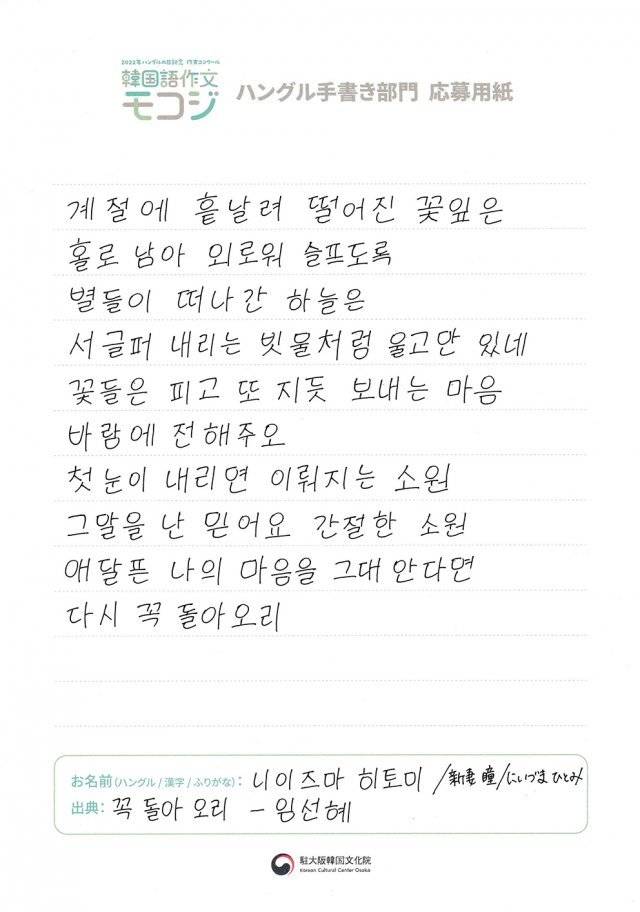 2022年ハングルの日記念 作文コンクール
韓国語作文
モコジ
ハングル手書き部門 応募用紙
계절에 흩날려 떨어진 꽃잎은
홀로 남아 외로워 슬프도록
별들이 떠나간 하늘은
서글퍼 내리는 빗물처럼 울고만 있네
꽃들은 피고 또 지듯 보내는 마음
바람에 전해주오
첫눈이 내리면 이뤄지는 소원
그말을 난 믿어요 간절한 소원
애달픈 나의 마음을 그대 안다면
다시 꼭 돌아오리
お名前(ハングル / 漢字 / ふりがな): 니이즈마 히토미 /新妻 瞳/にいづま ひとみ
出典: 꼭 돌아 오리 - 임선혜
駐大阪韓国文化院
Korean Cultural Center Osaka